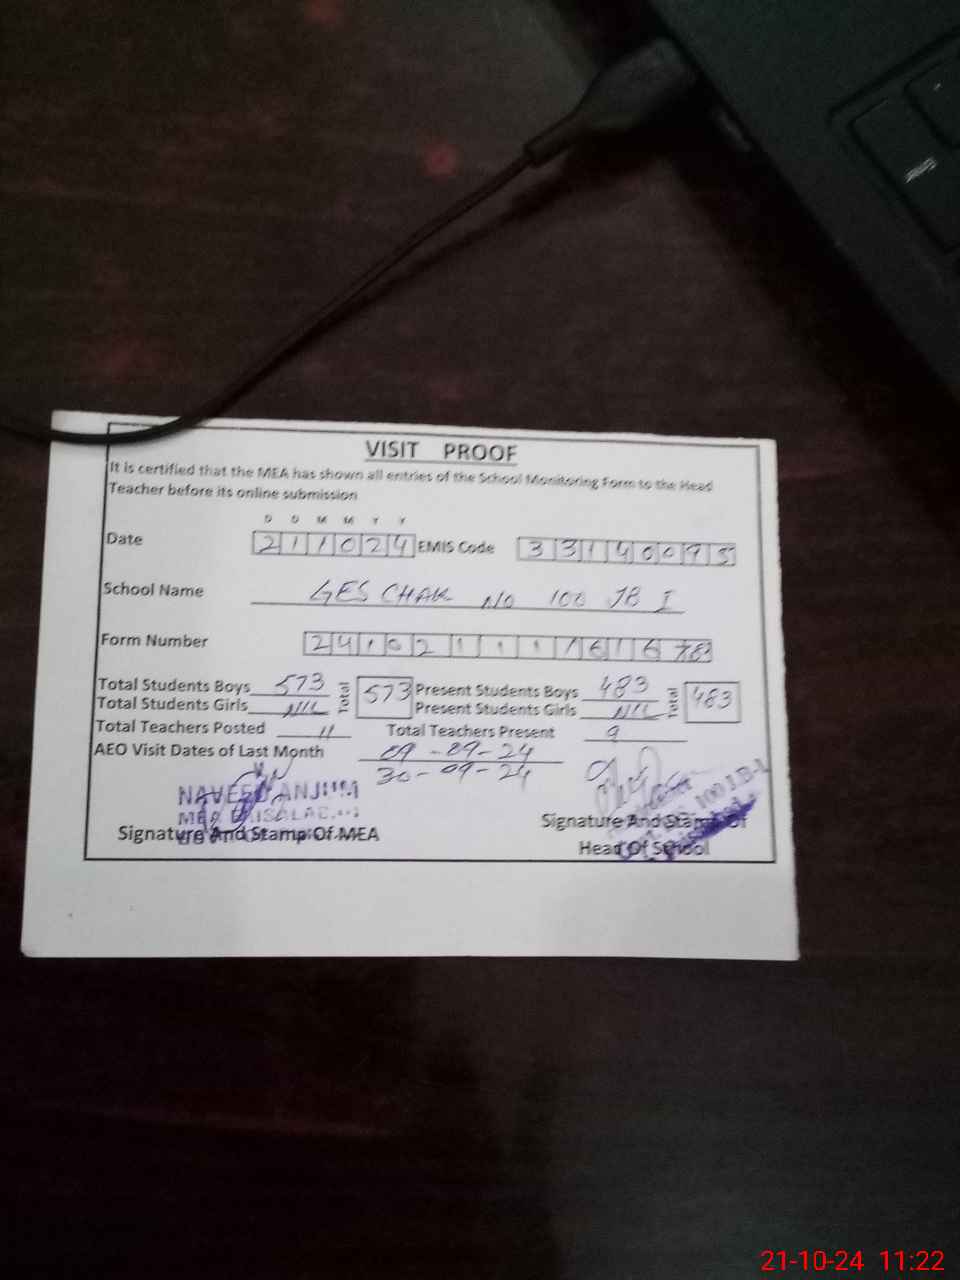 VISIT PROOF
It is certified that the MEA has shown all entries of the School Monitoring Form to the Head
Teacher before its online submission
D D M M Y Y
Date 211024 EMIS Code 33140095
School Name GES CHAK NO 100 JB I
Form Number
Total Students Boys 573 Total 573 Present Students Boys 483 Total 483
Total Students Girls NIL Present Students Girls NIL
Total Teachers Posted 11 Total Teachers Present 9
AEO Visit Dates of Last Month 09-09-24
30-09-24
NAVEED ANJUM
MEA FAISALABAD
Signature And Stamp Of MEA
100 J.B-I
Signature And Stamp Of
Head Of School
21-10-24 11:22